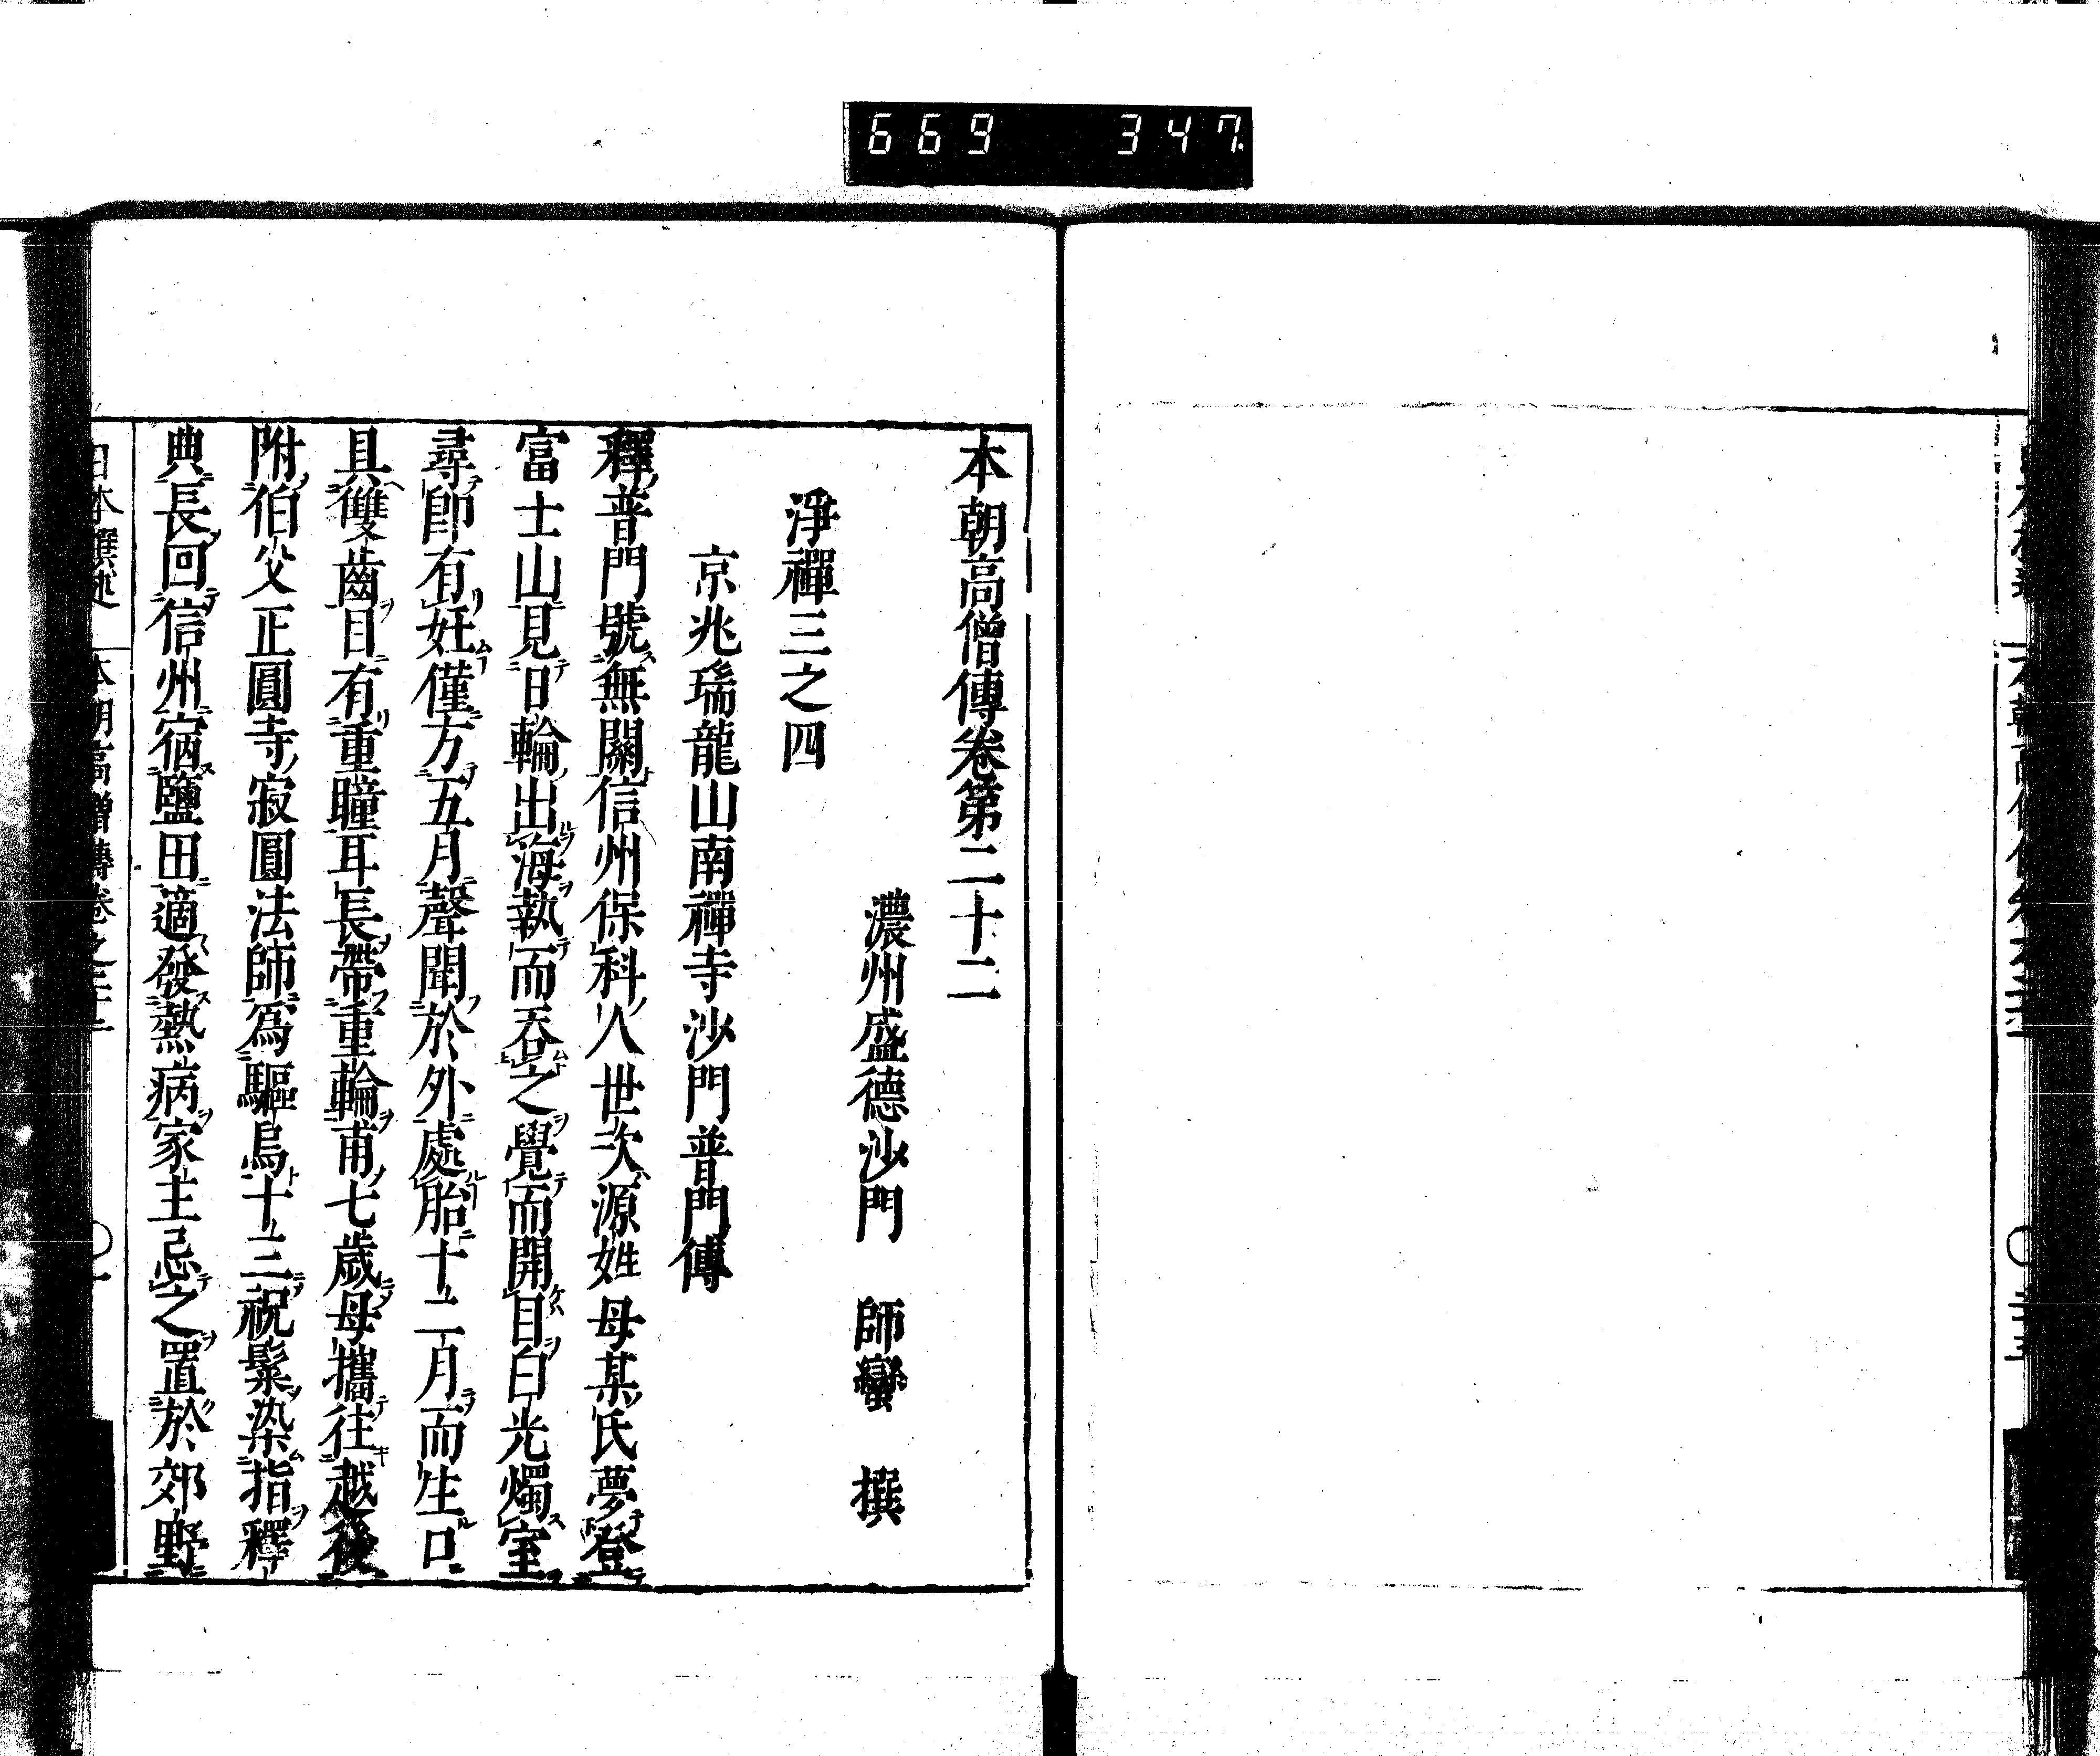 669 347
本朝高僧傳卷第二十二
濃州盛德沙門 師蠻 撰
淨禪三之四
京兆瑞龍山南禪寺沙門普門傳
釋普門號無關信州保科人世次源姓母某氏夢登
富士山見日輪出海執而吞之覺而開目白光燭室
尋卽有妊僅方五月聲聞於外處胎十二月而生口
具雙齒目有重瞳耳長帶重輪甫七歲母攜往越後
附伯父正圓寺寂圓法師爲驅烏十三祝髮染指釋
典長回信州宿鹽田適發熱病家主忌之置於郊野
日本撰述 本朝高僧傳卷之二十二 〇一